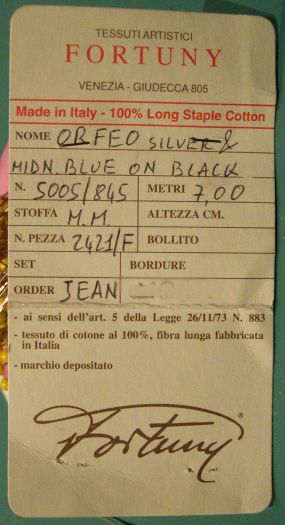 TESSUTI ARTISTICI
FORTUNY
VENEZIA - GIUDECCA 805
Made in Italy - 100% Long Staple Cotton
NOME ORFEO SILVER &
MIDN. BLUE ON BLACK
N. 5005/845 METRI 7,00
STOFFA M.M. ALTEZZA CM.
N. PEZZA 2421/F BOLLITO
SET BORDURE
ORDER JEAN
- ai sensi dell'art. 5 della Legge 26/11/73 N. 883
- tessuto di cotone al 100%, fibra lunga fabbricata
in Italia
- marchio depositato
Fortuny ®